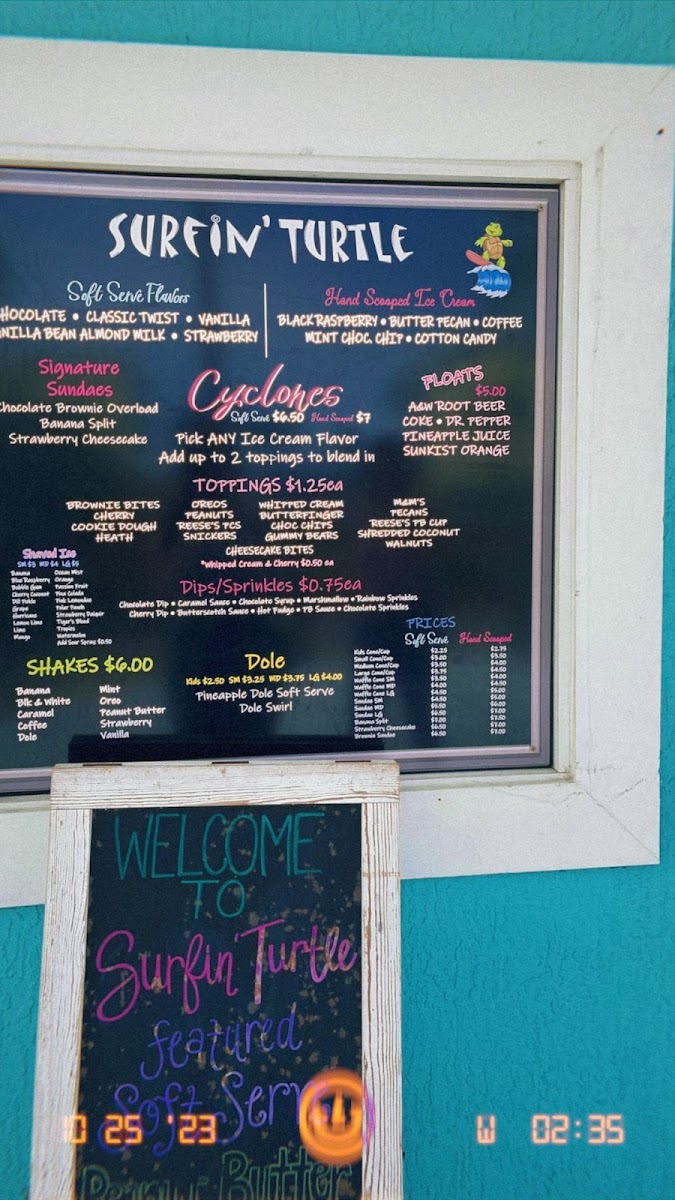 SURFIN' TURTLE
Soft Serve Flavors
HOCOLATE • CLASSIC TWIST • VANILLA
NILLA BEAN ALMOND MILK • STRAWBERRY
Hand Scooped Ice Cream
BLACK RASPBERRY • BUTTER PECAN • COFFEE
MINT CHOC. CHIP • COTTON CANDY
Signature
Sundaes
Chocolate Brownie Overload
Banana Split
Strawberry Cheesecake
Cyclones
Soft Serve $6.50 Hand Scooped $7
Pick ANY Ice Cream Flavor
Add up to 2 toppings to blend in
FLOATS
$5.00
A&W ROOT BEER
COKE • DR. PEPPER
PINEAPPLE JUICE
SUNKIST ORANGE
TOPPINGS $1.25ea
BROWNIE BITES
CHERRY
COOKIE DOUGH
HEATH
OREOS
PEANUTS
REESE'S PCS
SNICKERS
WHIPPED CREAM
BUTTERFINGER
CHOC CHIPS
GUMMY BEARS
M&M'S
PECANS
REESE'S PB CUP
SHREDDED COCONUT
WALNUTS
CHEESECAKE BITES
*Whipped Cream & Cherry $0.50 ea
Dips/Sprinkles $0.75ea
Chocolate Dip • Caramel Sauce • Chocolate Syrup • Marshmallow • Rainbow Sprinkles
Cherry Dip • Butterscotch Sauce • Hot Fudge • PB Sauce • Chocolate Sprinkles
Shaved Ice
SM $3 MD $4 LG $5
Banana
Blue Raspberry
Bubble Gum
Cherry Coconut
Dill Pickle
Grape
Hurricane
Lemon Lime
Lime
Mango
Ocean Mist
Orange
Passion Fruit
Pina Colada
Pink Lemonade
Polar Punch
Strawberry Daiquir
Tiger's Blood
Tropics
Watermelon
Add Sour Spray $0.50
SHAKES $6.00
Banana
Blk & White
Caramel
Coffee
Dole
Mint
Oreo
Peanut Butter
Strawberry
Vanilla
Dole
Kids $2.50 SM $3.25 MD $3.75 LG $4.00
Pineapple Dole Soft Serve
Dole Swirl
PRICES
Soft Serve Hand Scooped
Kids Cone/Cup $2.25 $2.75
Small Cone/Cup $3.00
Medium Cone/Cup $3.50
Large Cone/Cup
Waffle Cone SM
Waffle Cone MD
Waffle Cone LG
Sundae SM
Sundae MD
Sundae LG
Banana Split $7.00
Strawberry Cheesecake $6.50 $7.00
Brownie Sundae $6.50 $7.00
WELCOME
TO
Surfin' Turtle
featured
Soft Serve
Peanut Butter
10 25 '23 W 02:35